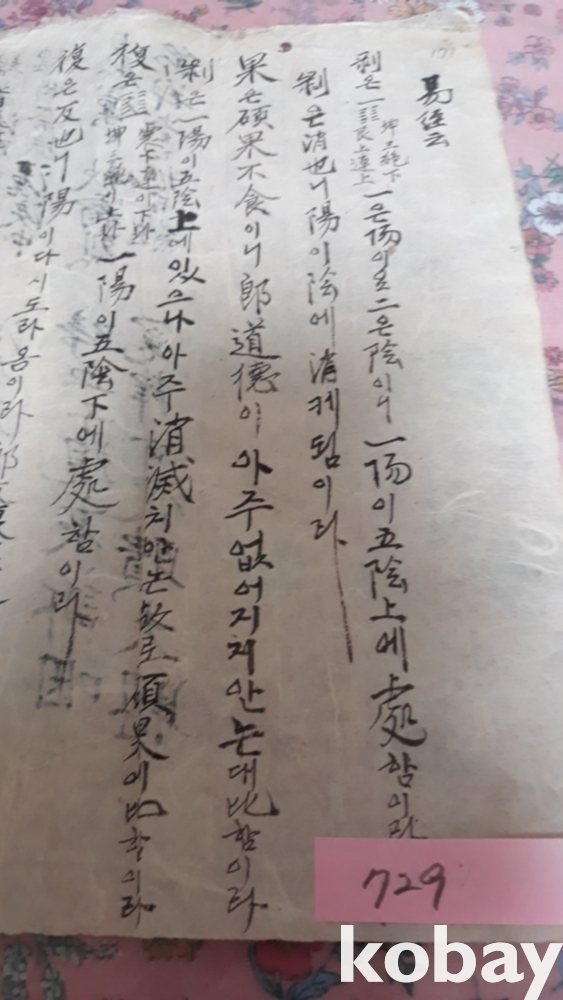 易經云
剝은 ䷖ 坤三絶下 艮上連上 一은 陽이요 二은 陰이니 一陽이 五陰上에 上處함이라
剝은 消也니 陽이 陰에 消케 됨이라
果은 碩果不食이니 郎道德이 아주 없어지지 안는대 比함이라
剝은 一陽이 五陰上에 있으나 아주 消滅치 안는 故로 碩果에 比함이라
復은 一陽이 五陰下에 處함이라
復은 反也니 陽이 다시 도라옴이라
729
kobay